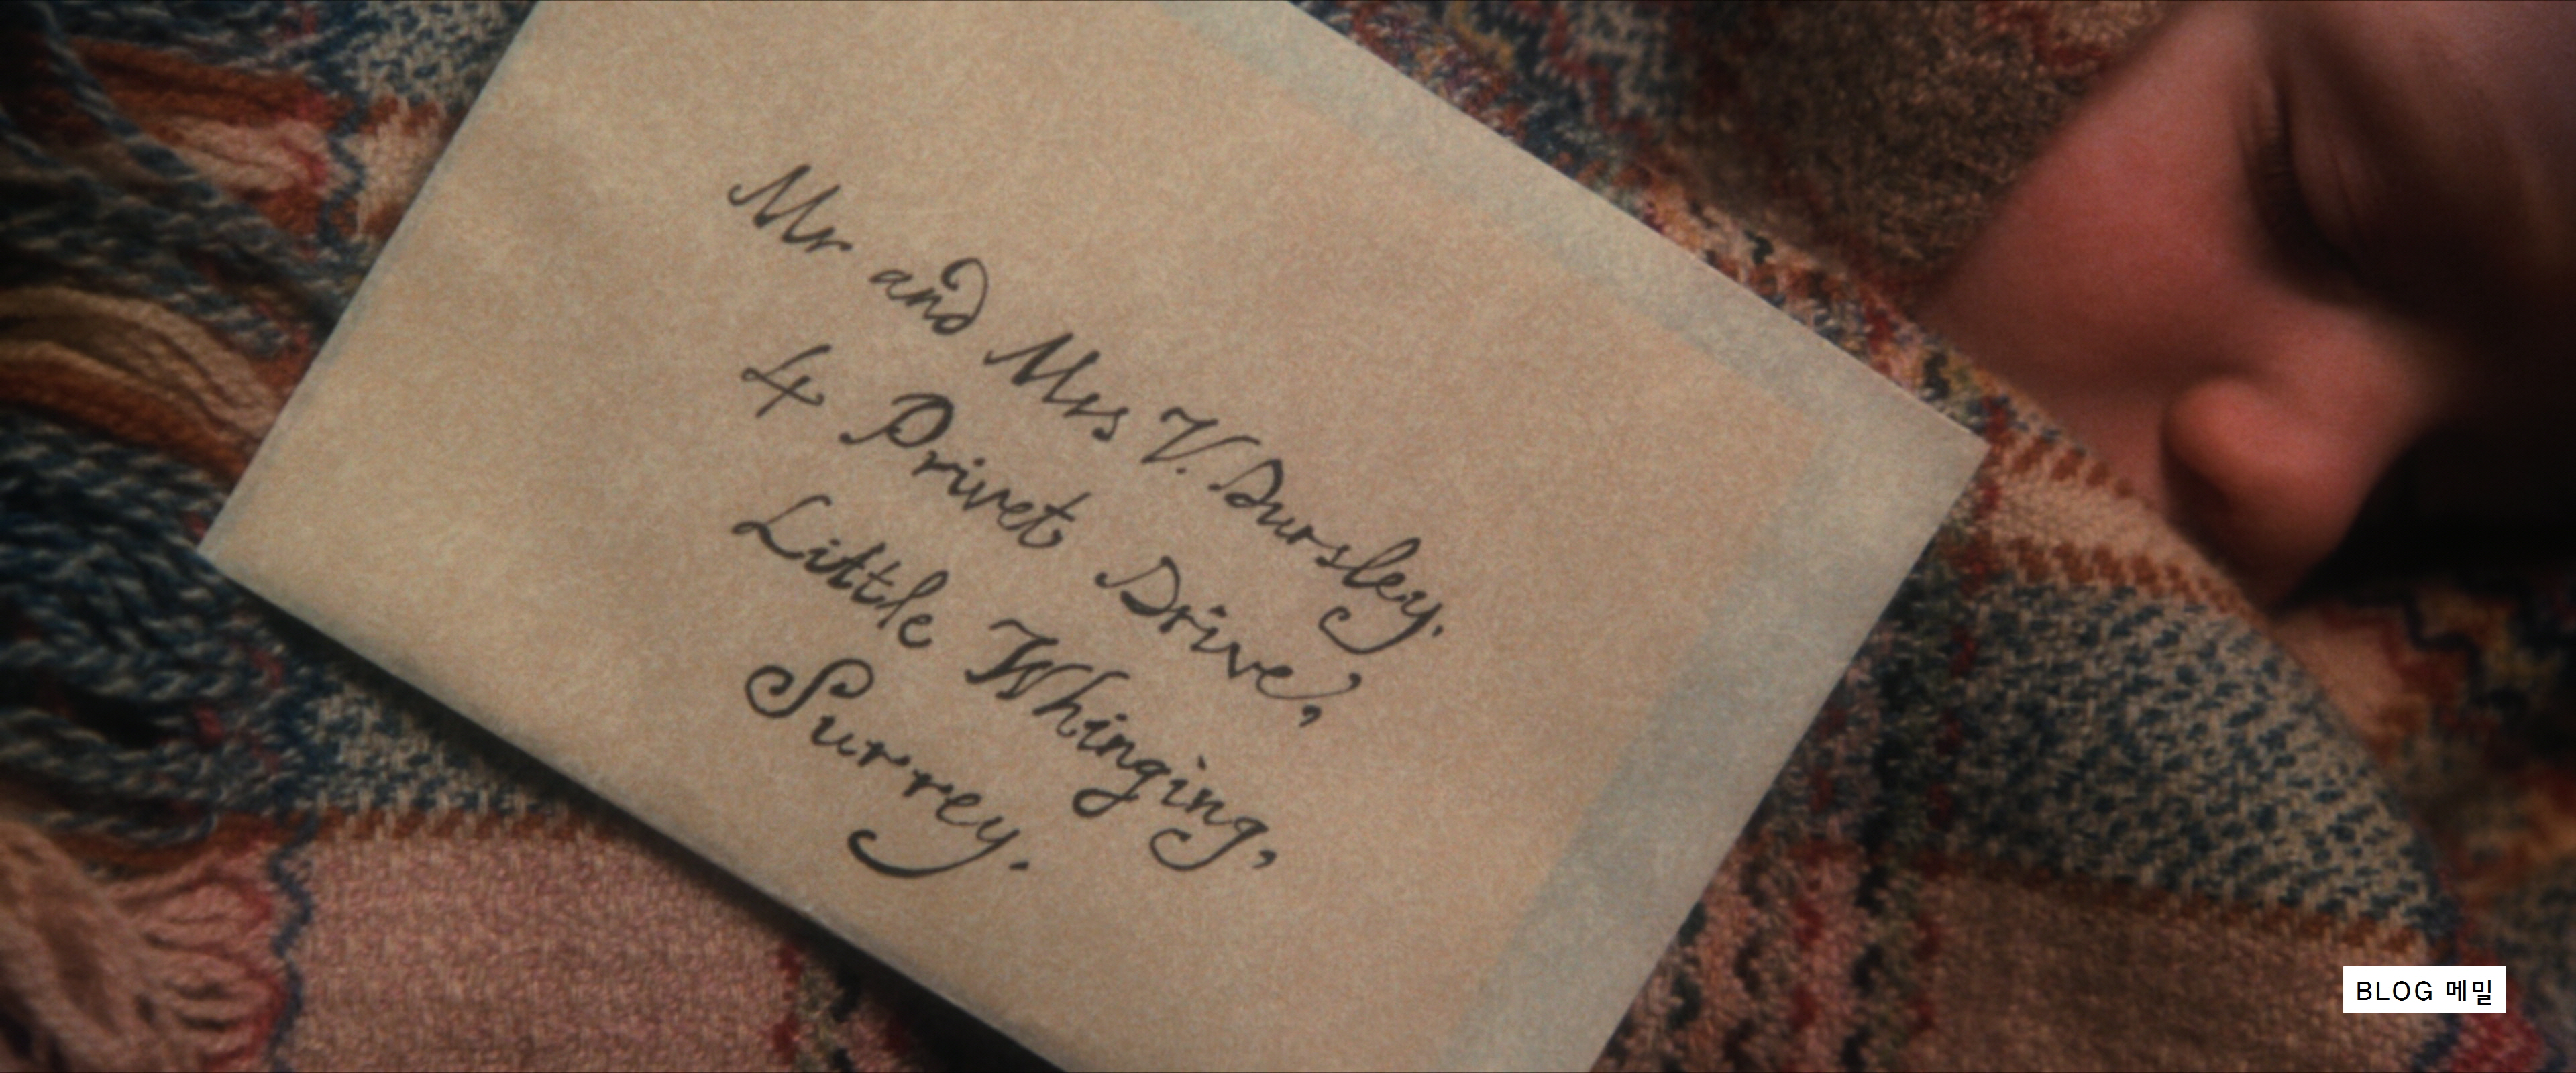 Mr and Mrs V. Dursley.
4 Privet Drive,
Little Whinging,
Surrey.
BLOG 메밀